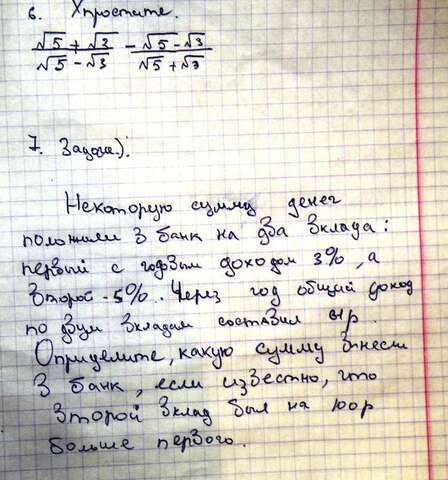 6. Упростите.
√5 + √3 / √5 - √3 - √5 - √3 / √5 + √3
7. Задача):
Некоторую сумму денег
положили в банк на два вклада:
первый с годовым доходом 3%, а
второй - 5%. Через год общий доход
по двум вкладам составил р.
Определите, какую сумму внесли
в банк, если известно, что
второй вклад был на 100р
больше первого.